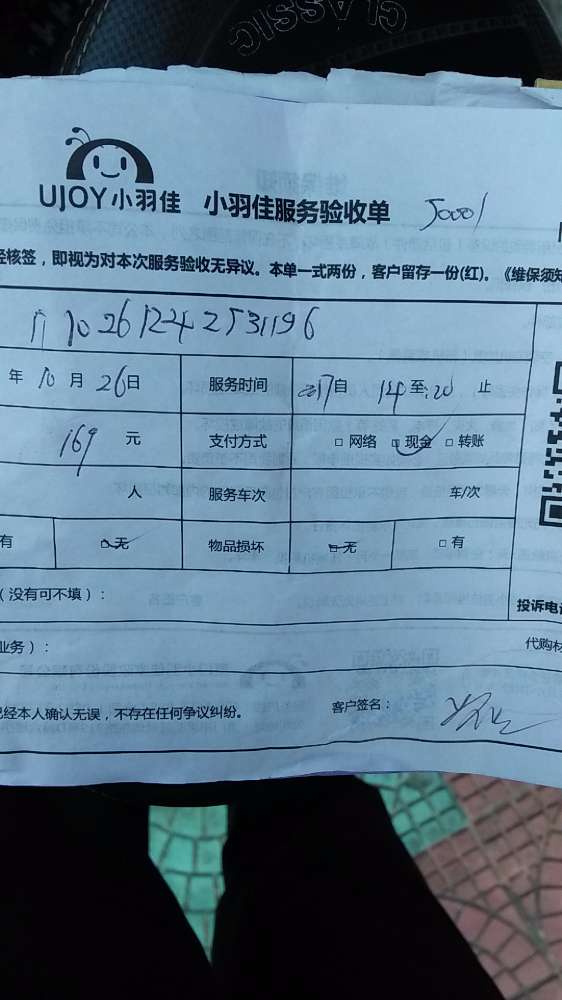 CLASSIC
UJOY小羽佳 小羽佳服务验收单 50001
经核签，即视为对本次服务验收无异议。本单一式两份，客户留存一份(红)。《维保须知
年10月26日 服务时间 2017自 14至:20 止
169 元 支付方式 □ 网络 □ 现金 □ 转账
人 服务车次 车/次
有 □ 无 物品损坏 □ 无 □ 有
（没有可不填）：
投诉电话
业务）： 代购材
已经本人确认无误，不存在任何争议纠纷。 客户签名：